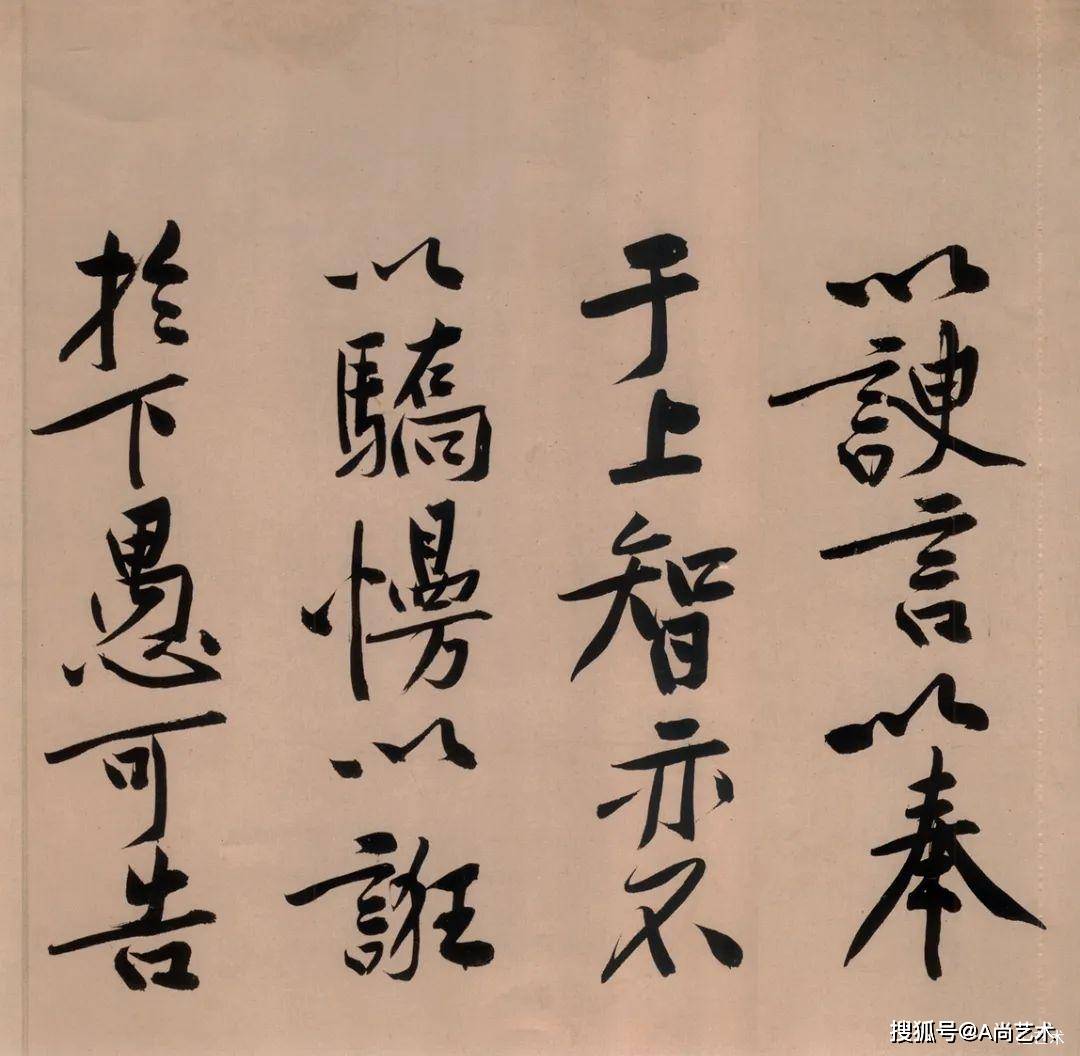 以諛言以奉
于上智亦不
以驕慢以誑
於下愚可告
搜狐号@A尚艺术